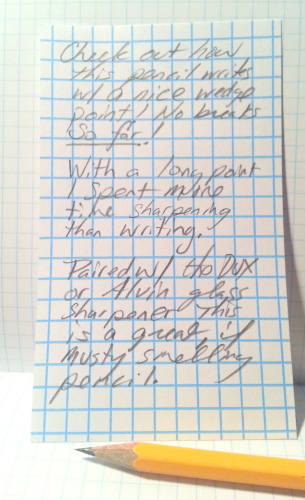 Check out how
this pencil writes
w/ a nice wedge
point! No breaks
So far!
With a long point
I spent more
time sharpening
than writing.
Paired w/ the DUX
or Alvin glass
sharpener this
is a great if
musty smelling
pencil.